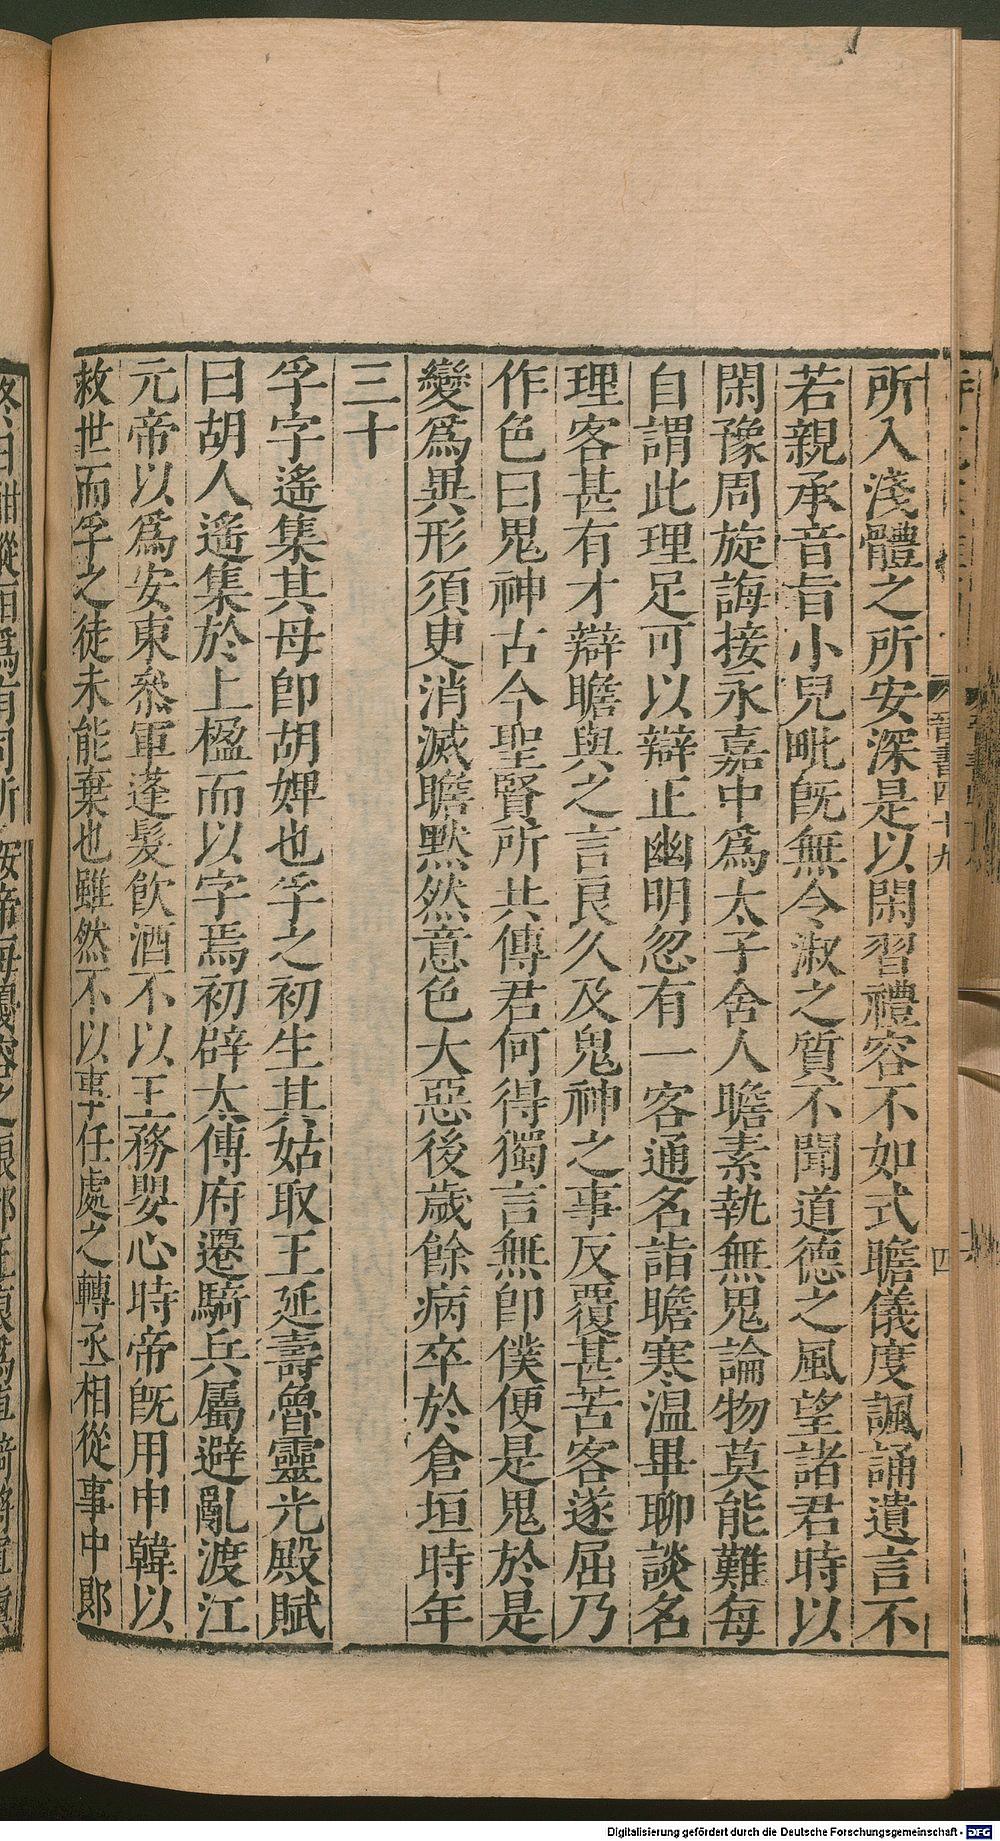 所入淺體之所安深是以閑習禮容不如式瞻儀度諷誦遺言不
若親承音旨小兒毗旣無令淑之質不聞道德之風望諸君時以
閑豫周旋誨接永嘉中爲太子舍人瞻素執無鬼論物莫能難每
自謂此理足可以辯正幽明忽有一客通名詣瞻寒溫畢聊談名
理客甚有才辯瞻與之言良久及鬼神之事反覆甚苦客遂屈乃
作色曰鬼神古今聖賢所共傳君何得獨言無卽僕便是鬼於是
變爲異形須臾消滅瞻默然意色大惡後歲餘病卒於倉垣時年
三十
孚字遙集其母卽胡婢也孚之初生其姑取王延壽魯靈光殿賦
曰胡人遙集於上楹而以字焉初辟太傅府遷騎兵屬避亂渡江
元帝以爲安東叅軍蓬髮飮酒不以王務嬰心時帝旣用申韓以
救世而孚之徒未能棄也雖然不以事任處之轉丞相從事中郞
晉書四十九
四
Digitalisierung gefördert durch die Deutsche Forschungsgemeinschaft - DFG